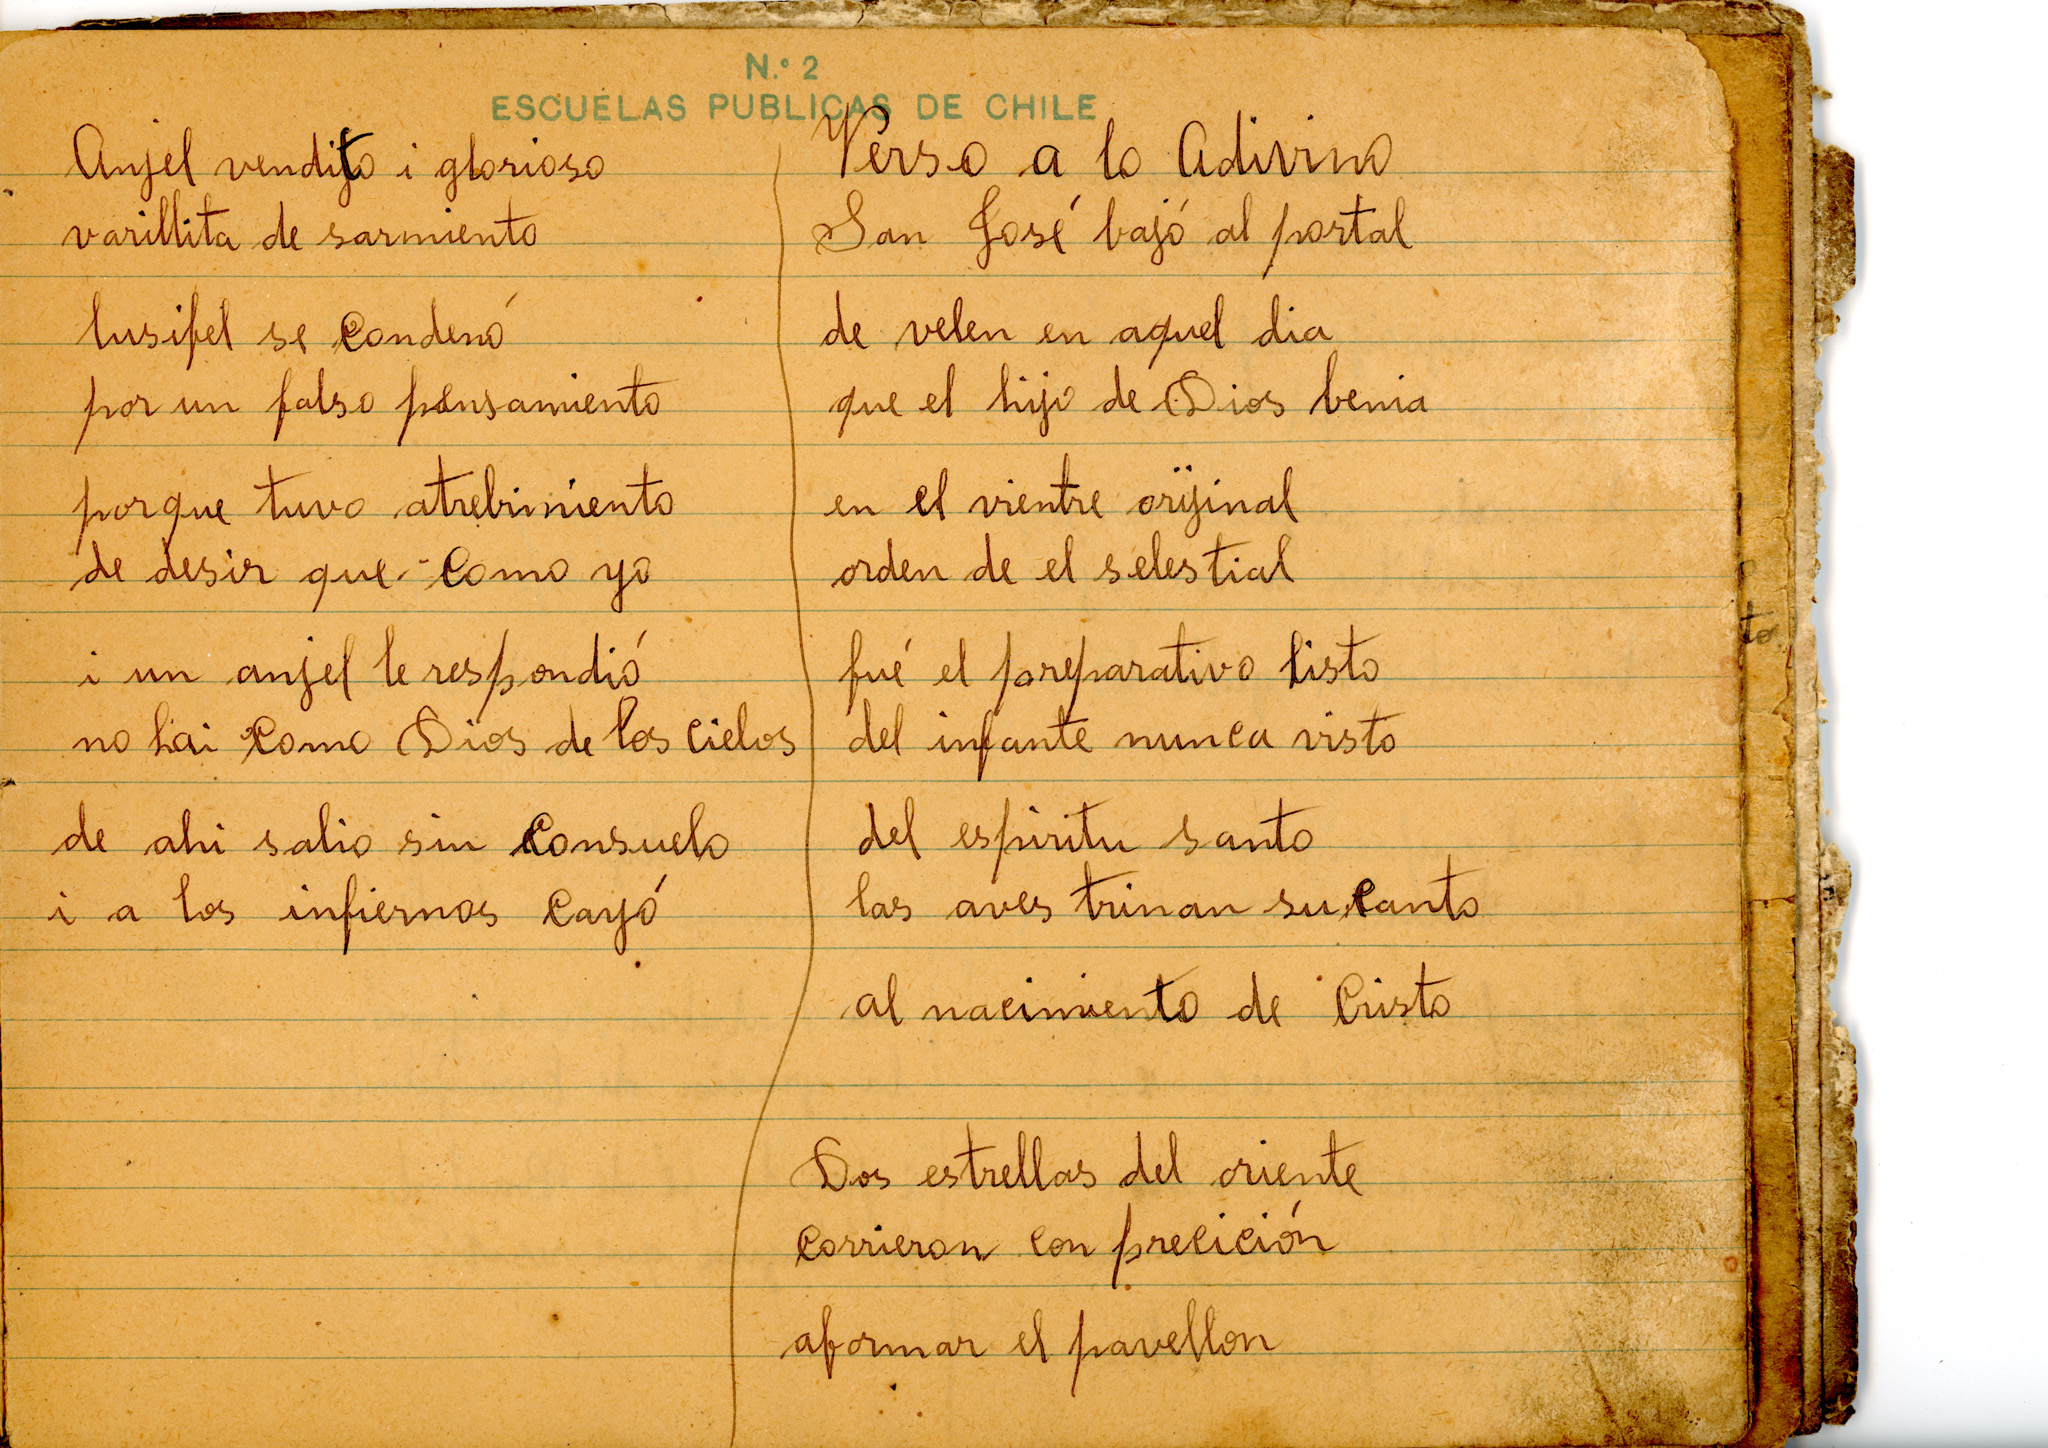 N.º 2
ESCUELAS PUBLICAS DE CHILE
Anjel vendito i glorioso
varillita de sarmiento
lusifel se condenó
por un falso pensamiento
porque tuvo atrebimiento
de desir que como yo
i un anjel le respondió
no hai como Dios de los cielos
de ahi salio sin consuelo
i a los infiernos cayó
Verso a lo Adivino
San José bajó al portal
de velen en aquel dia
que el hijo de Dios benia
en el vientre orijinal
orden de el selestial
fué el preparativo listo
del infante nunca visto
del espiritu santo
las aves trinan su canto
al nacimiento de Cristo
Dos estrellas del oriente
corrieron con precición
aformar el pavellon
to